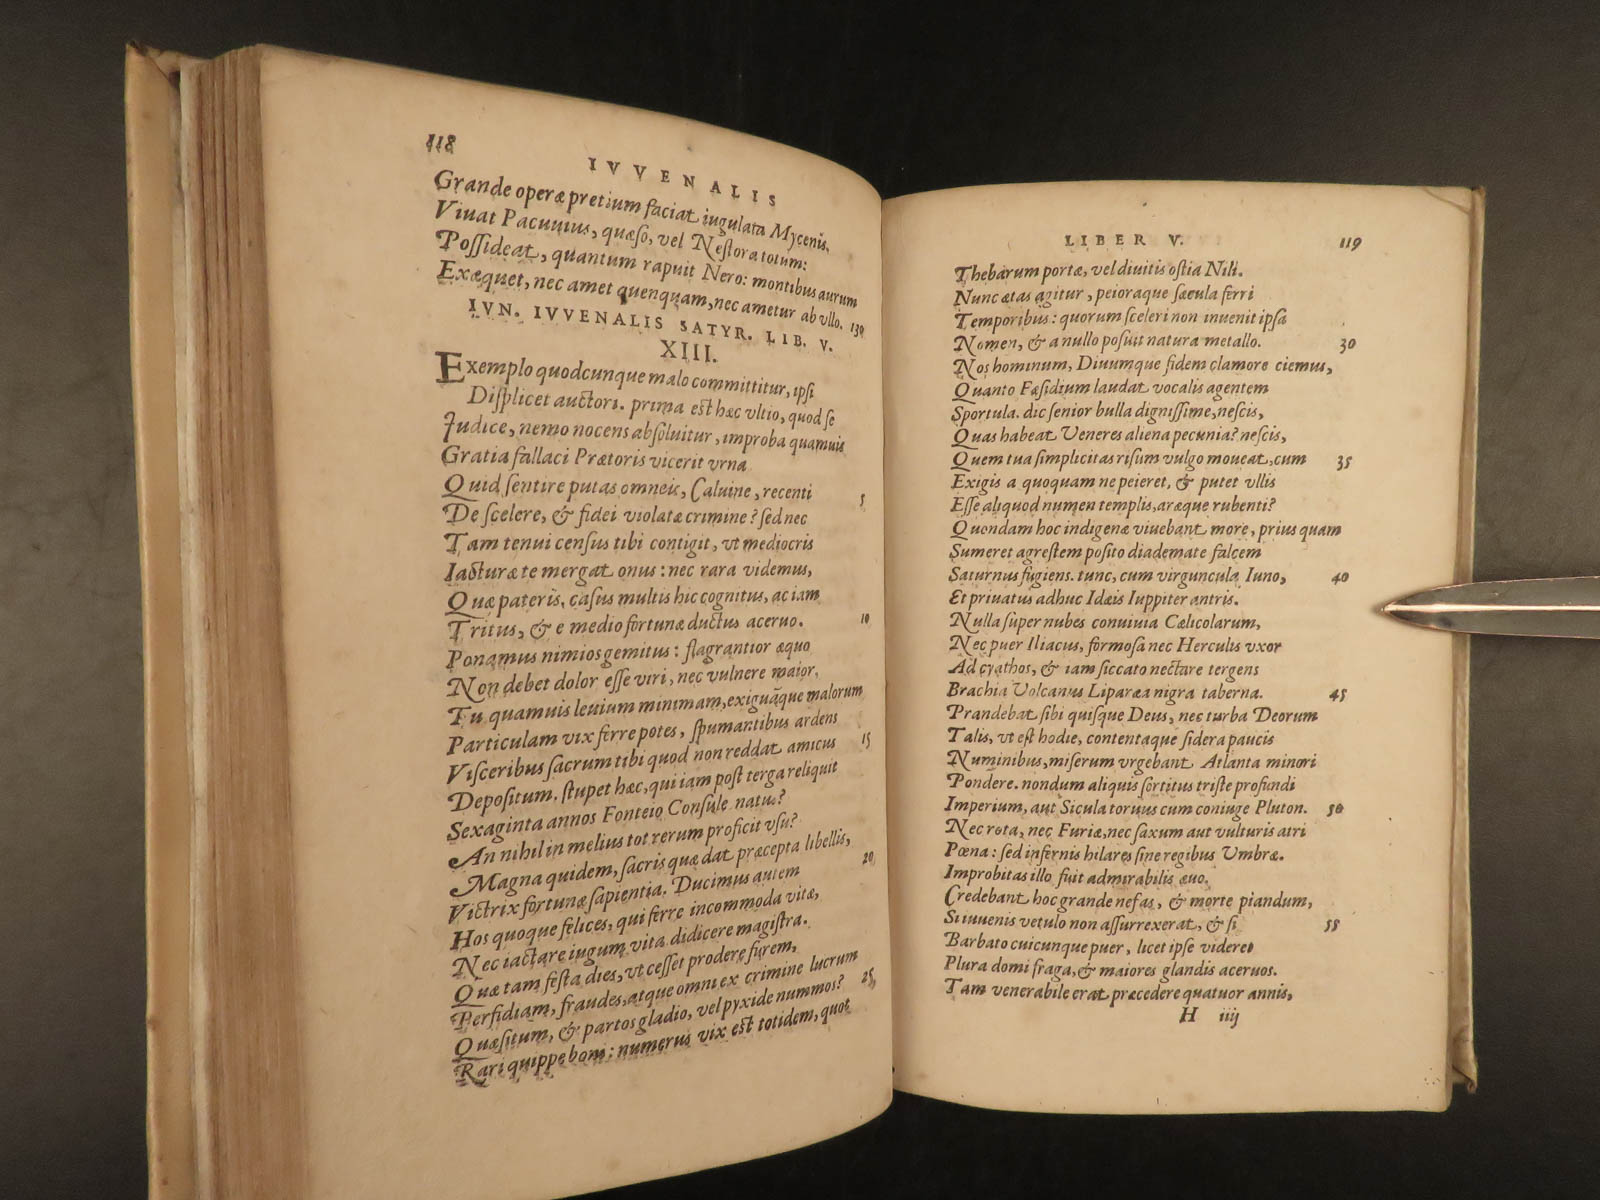 118
IVVENALIS
Grande operæ pretium faciat iugulata Mycenis.
Viuat Pacuuius, quæso, vel Nestora totum:
Possideat, quantum rapuit Nero: montibus aurum
Exæquet, nec amet quenquam, nec ametur ab vllo. 130
IVN. IVVENALIS SATYR. LIB. V.
XIII.
Exemplo quodcunque malo committitur, ipsi
Displicet auctori. prima est hæc vltio, quod se
Iudice, nemo nocens absoluitur, improba quamuis
Gratia fallaci Prætoris vicerit vrna
Quid sentire putas omneis, Caluine, recenti 5
De scelere, & fidei violatæ crimine? sed nec
Tam tenui census tibi contigit, vt mediocris
Iacturæ te mergat onus: nec rara videmus,
Quæ pateris, casus multis hic cognitus, ac iam
Tritus, & e medio fortunæ ductus aceruo. 10
Ponamus nimios gemitus: flagrantior æquo
Non debet dolor esse viri, nec vulnere maior.
Tu quamuis leuium minimam, exiguāque malorum
Particulam vix ferre potes, spumantibus ardens
Visceribus sacrum tibi quod non reddat amicus 15
Depositum. stupet hæc, qui iam post terga reliquit
Sexaginta annos Fonteio Consule natus?
An nihil in melius tot rerum proficit vsu?
Magna quidem, sacris quæ dat præcepta libellis,
Victrix fortunæ sapientia. Ducimus autem 20
Hos quoque felices, qui ferre incommoda vitæ,
Nec iactare iugum vita didicere magistra.
Quæ tam festa dies, vt cesset prodere furem,
Perfidiam, fraudes, atque omni ex crimine lucrum
Quæsitum, & partos gladio, vel pyxide nummos? 25
Rari quippe boni: numerus vix est totidem, quot
LIBER V. 119
Thebarum portæ, vel diuitis ostia Nili.
Nunc ætas agitur, peioraque sæcula ferri
Temporibus: quorum sceleri non inuenit ipsa
Nomen, & a nullo posuit natura metallo. 30
Nos hominum, Diuumque fidem clamore ciemus,
Quanto Fæsidium laudat vocalis agentem
Sportula. dic senior bulla dignissime, nescis,
Quas habeat Veneres aliena pecunia? nescis,
Quem tua simplicitas risum vulgo moueat, cum 35
Exigis a quoquam ne peieret, & putet vllis
Esse aliquod numen templis, aræque rubenti?
Quondam hoc indigenæ viuebant more, prius quam
Sumeret agrestem posito diademate falcem
Saturnus fugiens. tunc, cum virguncula Iuno, 40
Et priuatus adhuc Idæis Iuppiter antris.
Nulla super nubes conuiuia Cælicolarum,
Nec puer Iliacus, formosa nec Herculis vxor
Ad cyathos, & iam siccato nectare tergens
Brachia Volcanus Liparæa nigra taberna. 45
Prandebat sibi quisque Deus, nec turba Deorum
Talis, vt est hodie, contentaque sidera paucis
Numinibus, miserum vrgebant Atlanta minori
Pondere. nondum aliquis sortitus triste profundi
Imperium, aut Sicula toruus cum coniuge Pluton. 50
Nec rota, nec Furiæ, nec saxum aut vulturis atri
Pœna: sed infernis hilares sine regibus Vmbræ.
Improbitas illo fuit admirabilis æuo.
Credebant hoc grande nefas, & morte piandum,
Si iuuenis vetulo non assurrexerat, & si 55
Barbato cuicunque puer, licet ipse videret
Plura domi fraga, & maiores glandis aceruos.
Tam venerabile erat præcedere quatuor annis,
H iiij